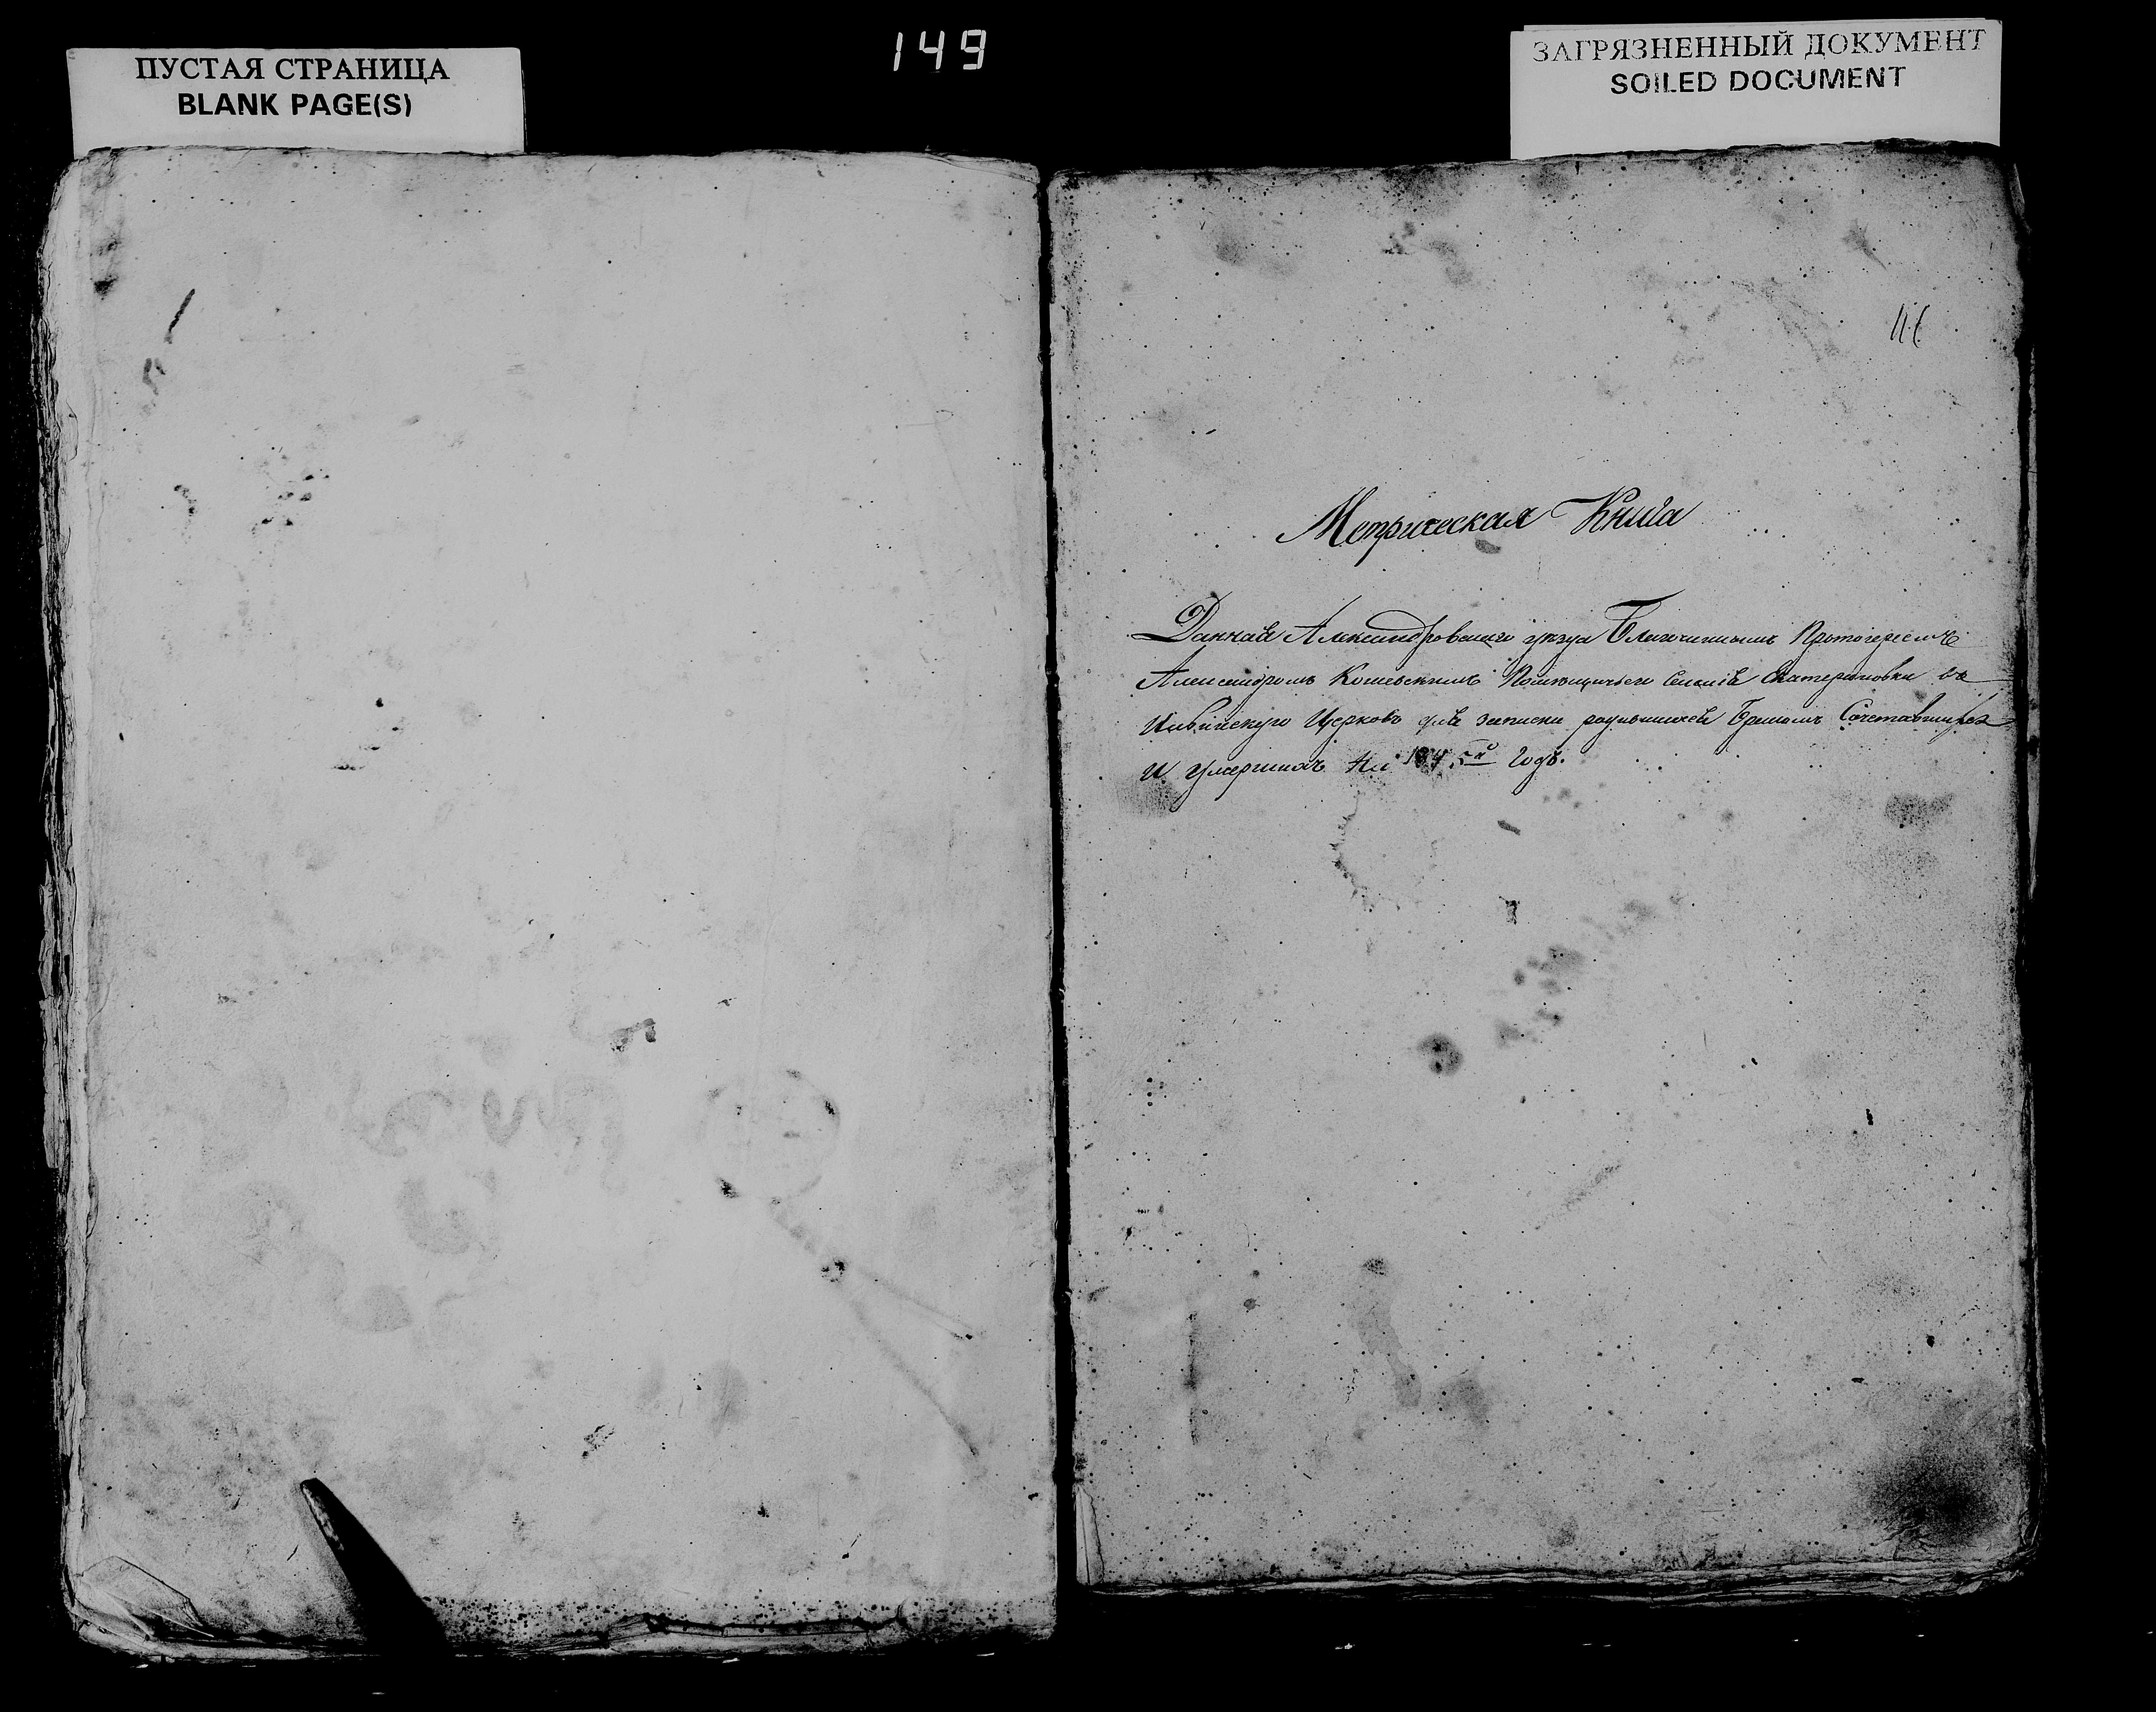 ПУСТАЯ СТРАНИЦА
BLANK PAGE(S)
149
ЗАГРЯЗНЕННЫЙ ДОКУМЕНТ
SOILED DOCUMENT
Метрическая Книга
Данная Александровскаго уезда Благочиннымъ Протоіереемъ
Александромъ Помещичьей Екатериновки въ
Церковь для записки родившихся Бракомъ Сочетавшихся
и умершихъ на 1845й годъ.